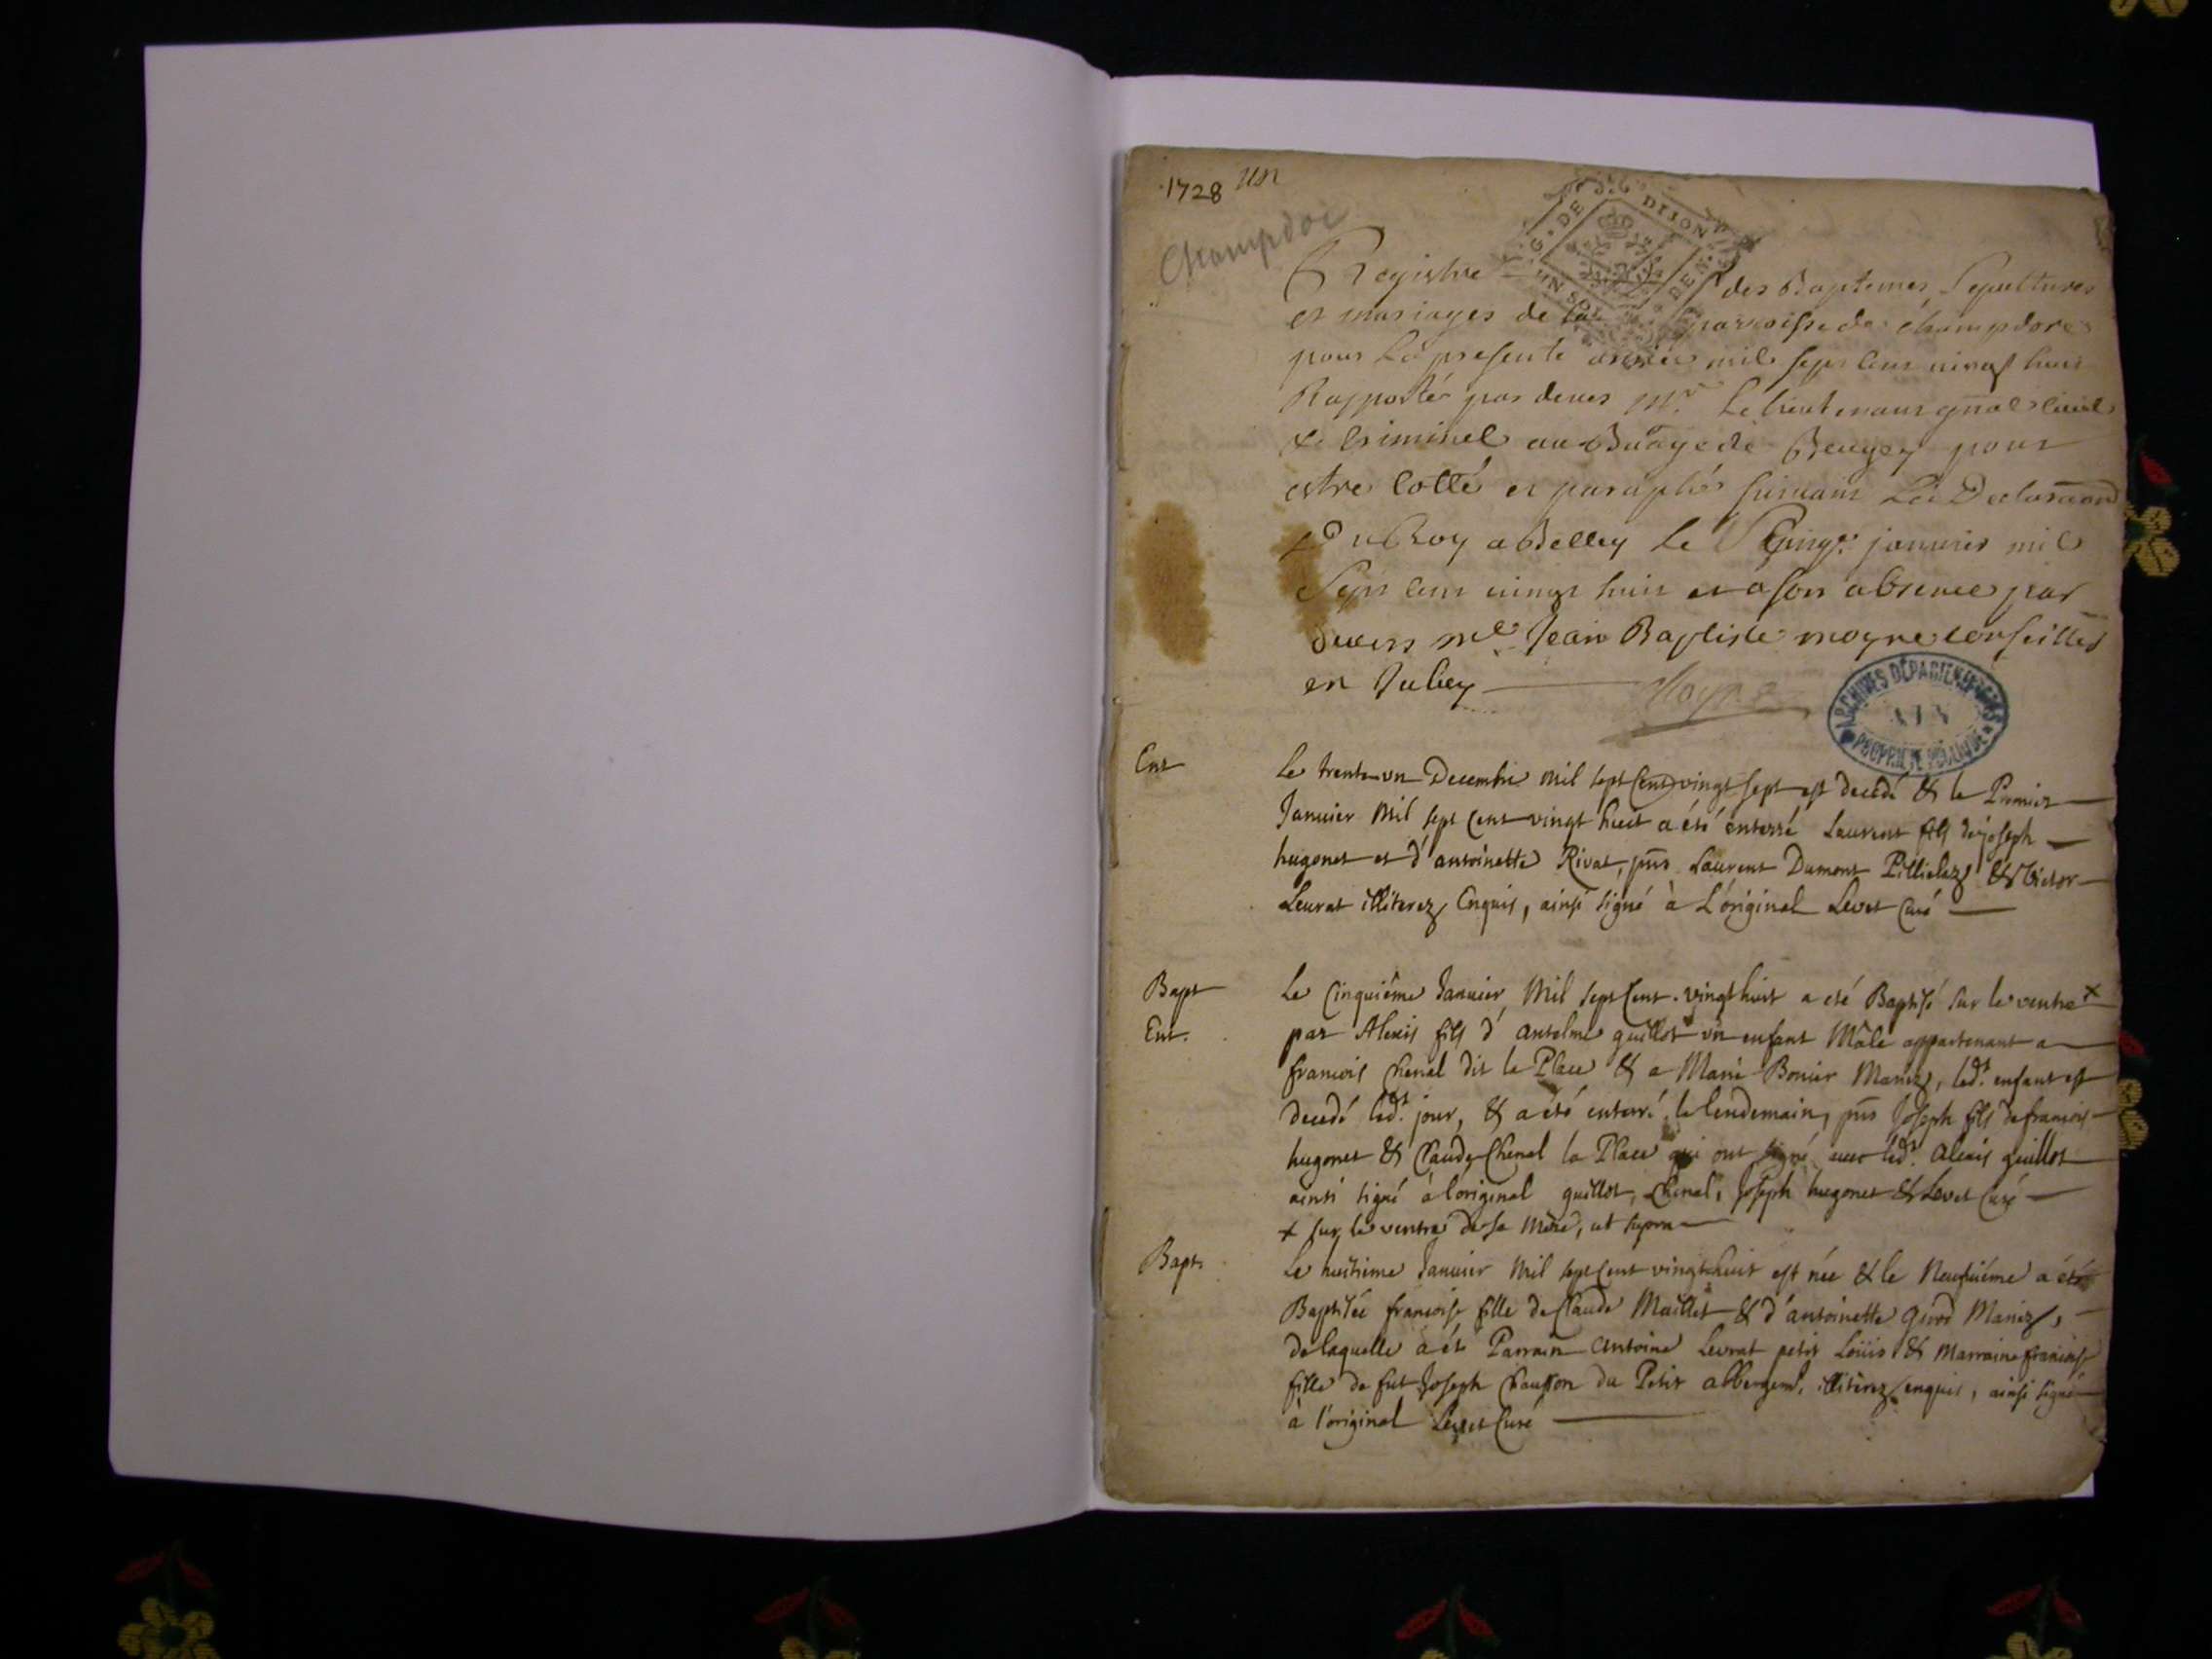 1728 un
Champdor
G. DE DIJON
UN SOL DE N.
Registre des Baptemes, Sepultures
et mariages de la parroisse de champdore
pour La presente année mil sept cent vingt huit
Rapporté par devers Mr. Le lieutenant gnal civil
& Criminel au Baage de Beugey pour
estre cotté et paraphé suivant La Declaraon
Du Roy a Belley le janvier mil
Sept cent vingt huit et a son absence par
devers Me Jean Baptiste moyne conseiller
en Iceluy Moyne
ARCHIVES DÉPARTEMENTALES
AIN
PROPRIÉTÉ PUBLIQUE
Ent Le trente un Decembre mil sept Cent vingt sept est decédé & le Premier
Janvier Mil sept Cent vingt huit a été enterré Laurent fils de joseph
hugonet et d'antoinette Rivat, pns Laurent Dumont Pillielez & Victor
Levrat illiterez Enquis, ainsi signé à L'original Levet Curé
Bapt Le Cinquiême Janvier Mil sept Cent vingt huit a eté Baptisé sur le ventre +
Ent. par Alexis fils d'anselme guillot un enfant Mâle appartenant a
francois Chenel dit la Place & a Marie Bonier Mariez, led.t enfant est
decedé led.t jour, & a été enterré le lendemain, pns Joseph fils de francois
hugonet & Claude Chenel la Place qui ont signé avec led.t alexis guillot
ainsi signé à l'original guillot, Chenel, Joseph hugonet & Levet Curé
+ sur le ventre de sa Mere, ut supra
Bapt. Le huitieme Janvier Mil sept Cent vingt huit est née & le Neufviéme a été
Baptisée francoise fille de Claude Maillet & d'antoinette girod Mariez,
de laquelle a été Parrain Antoine Levrat petit Loüis & Marraine francoise
fille de fut Joseph Chausson du Petit abbergem.t illiterez enquis, ainsi signé
à l'original Levet Curé